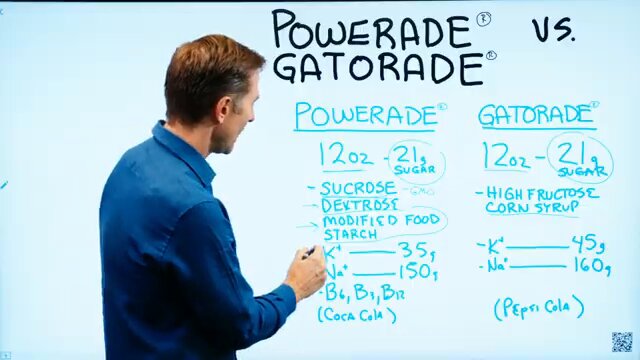 POWERADE® VS.
GATORADE®
POWERADE®
12oz - 21g
SUGAR
- SUCROSE - GMO
- DEXTROSE
- MODIFIED FOOD
STARCH
K+ — 35g
Na+ — 150g
- B6, B3, B12
(COCA COLA)
GATORADE®
12oz - 21g
SUGAR
- HIGH FRUCTOSE
CORN SYRUP
- K+ — 45g
- Na+ — 160g
(PEPSI COLA)